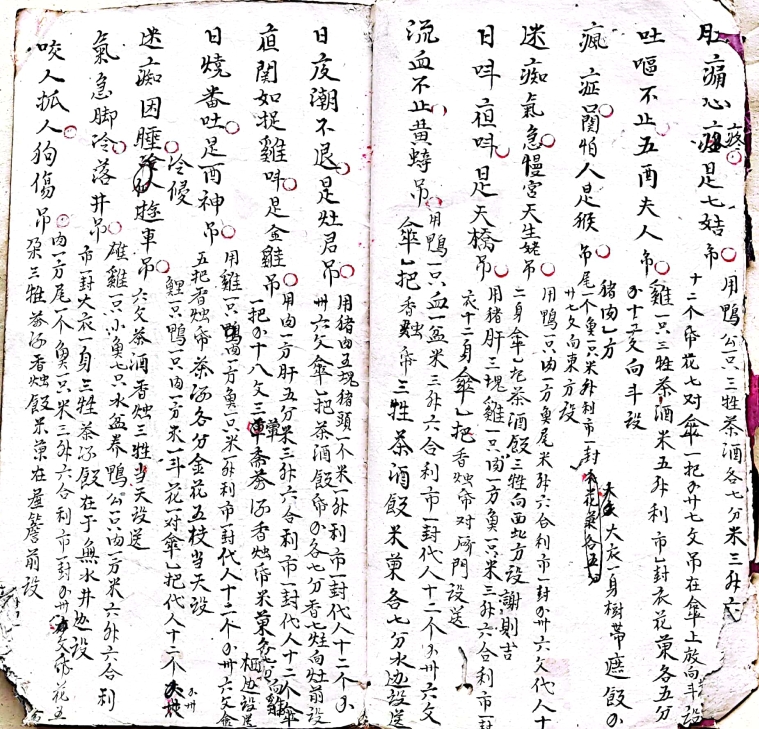 肚痛心疼是七姑吊 用鴨公一只三牲茶酒各七分米三升六
十二个帋花七对傘一把分廿七文吊在傘上放向斗設
吐嘔不止五酉夫人吊 雞一只三牲茶酒米五升利市一封衣花菓各五分
猪肉一方 分十五文向斗設
瘋症閙怕人是猴吊 尾一个魚一只米升利市一封 大衣一身樹蒂庶飯分
廿七文向東方設
迷痴氣急慢宮天生姥吊 用鴨一只肉一方魚尾米升六合利市一封分卅六文代人十
二身傘一把茶酒飯三牲向西北方設謝則吉
日呌夜呌是天橋吊 用猪肝三塊雞一只肉一方魚一只米三升六合利市一封
衣十二身傘一把香燭帋对橋門設送
流血不止黄蜞吊 用鴨一只血一盆米三升六合利市一封代人十二个分卅六文
傘一把香燭帋三牲茶酒飯米菓各七分水边設送
日夜潮不退是灶君吊 用猪肉五塊猪頭一个米一升利市一封代人十二个分
卅六文傘一把茶酒飯帋分各七分香七炷向灶前設
夜閙如捉雞呌是金雞吊 用肉一方肝五分米三升六合利市一封代人十二个傘
一把分十八文三葷三斋茶酒香燭帋米菓 向雞栖边設送
日燒番吐是酉神吊 用雞一只鴨肉一方魚一只米升利市一封代人十二个分卅六文傘
五把香燭帋茶酒各分金花五枝当天設
迷痴因睡冷侵人趂車吊 鯉一只鴨一只肉一方米一斗花一对傘一把代人十二个分卅
六文茶酒香燭三牲当天設送
氣急脚冷落井吊 雄雞一只小魚七只水盆养鴨公一只肉一方米六升六合利
市一封大衣一身三牲茶酒飯在于無水井边設
咬人抓人狗傷吊 肉一方尾一个魚一只米三升六合利市一封分卅文帋花五
朶三牲茶酒香燭飯米菓在屋簷前設